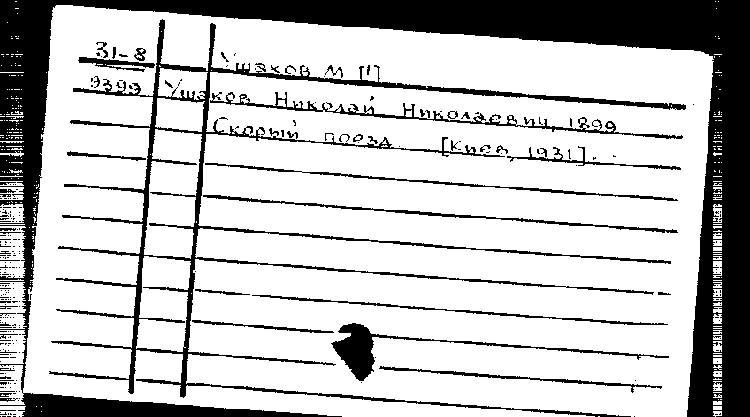 31-8 Ушаков М [!]
9399 Ушаков Николай Николаевич, 1899
Скорый поезд [Киев, 1931].